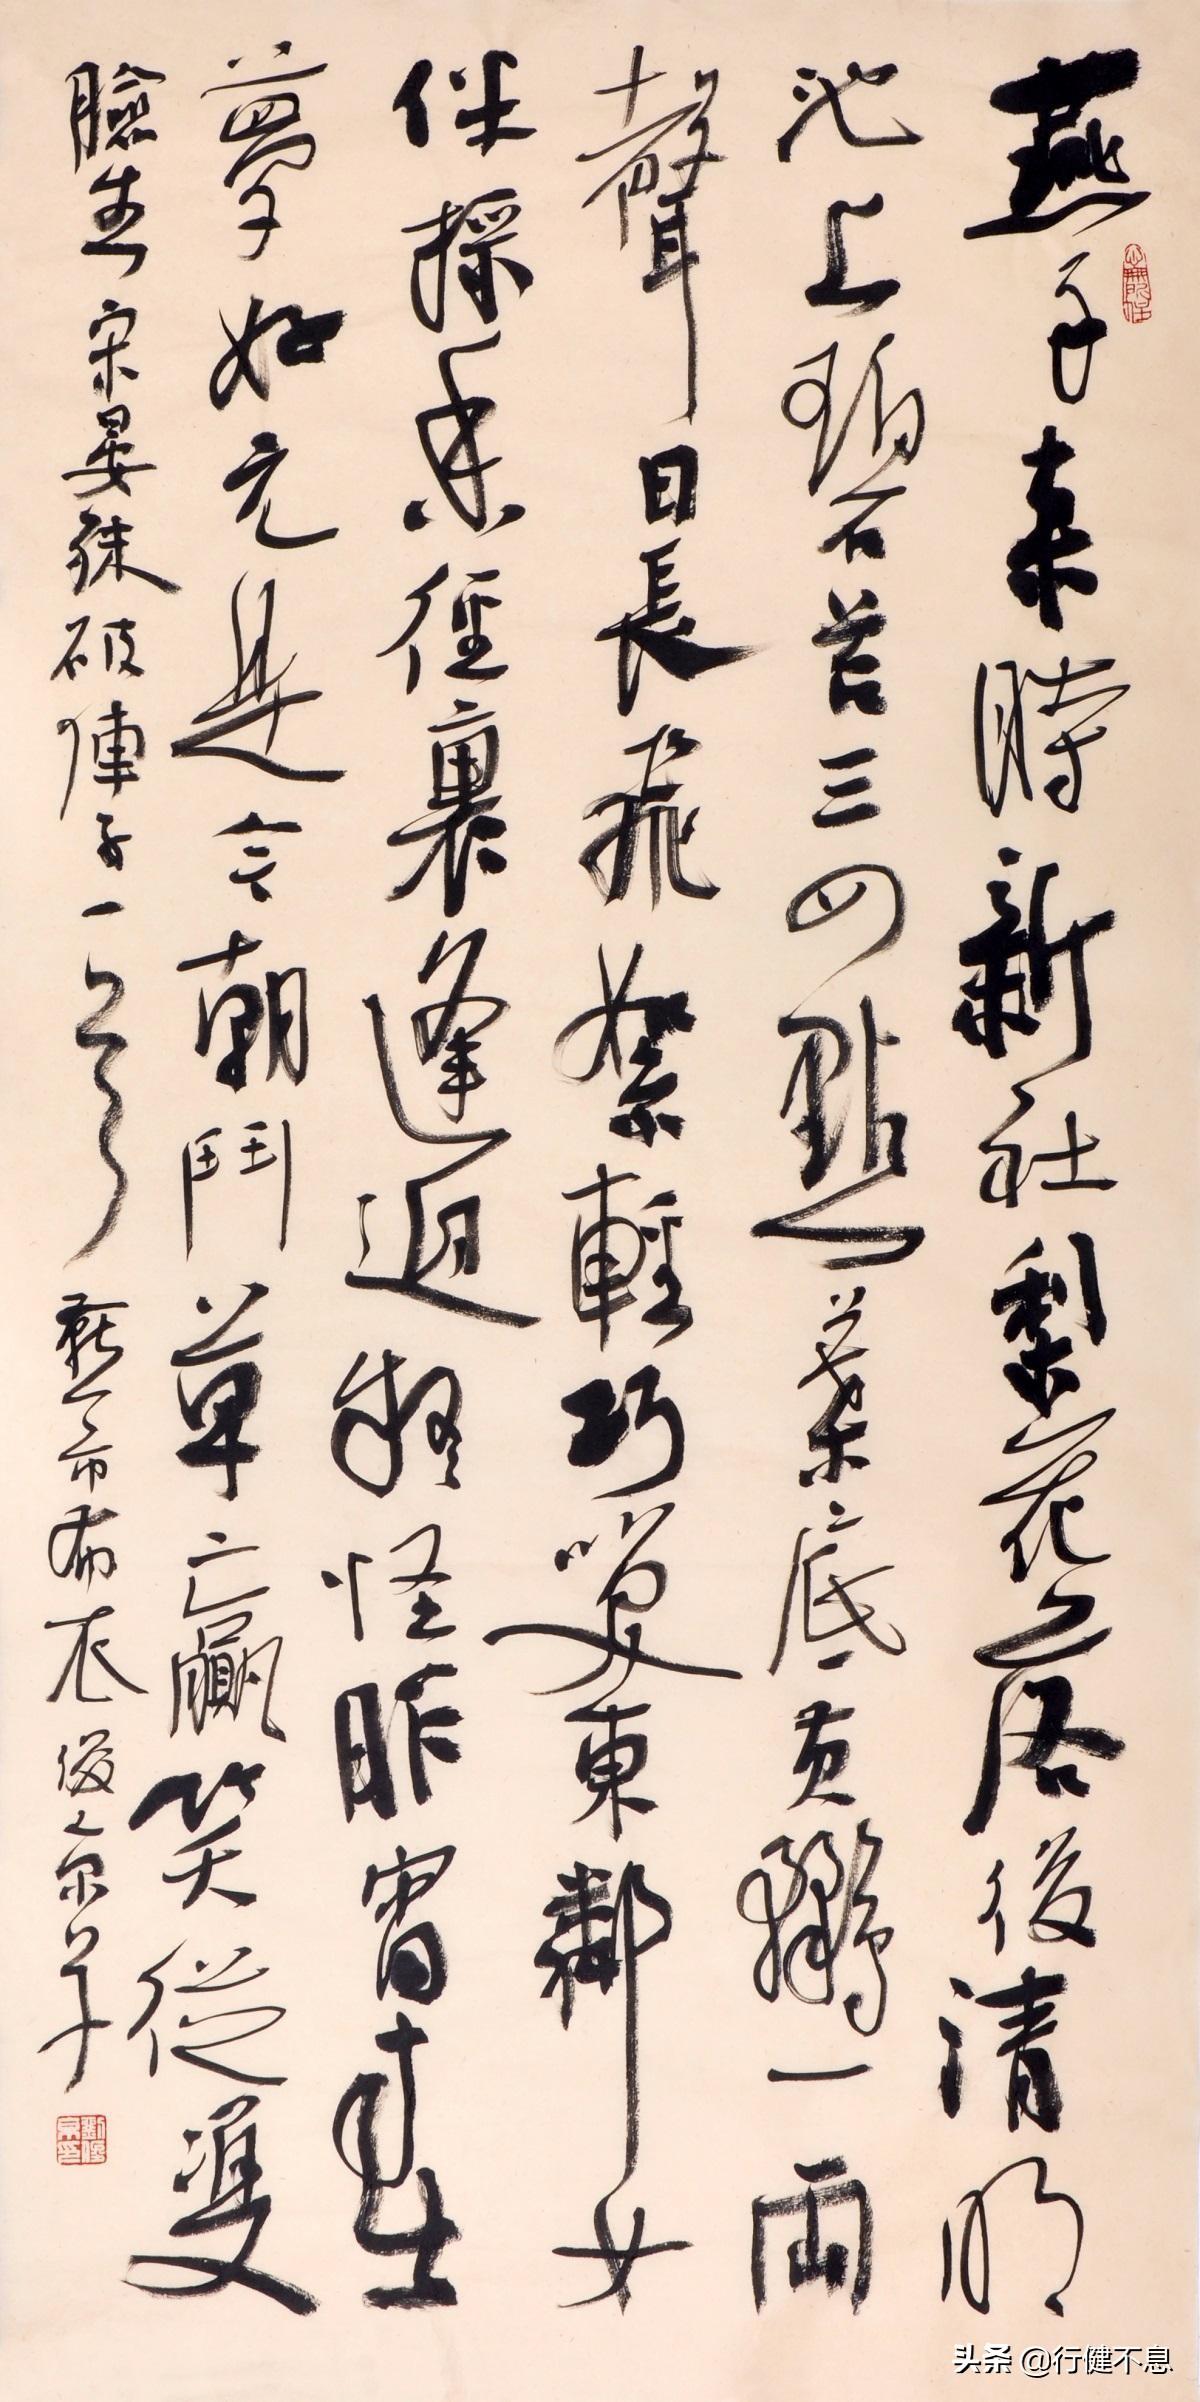 燕子來時新社梨花落後清明
池上碧苔三四點葉底黃鸝一兩
聲日長飛絮輕巧咲東鄰女
伴採香徑裏逢迎疑怪昨宵春
夢好元是今朝鬥草贏笑從雙
臉生 宋晏殊破陣子一首 燕市布衣俊京草
头条 @行健不息